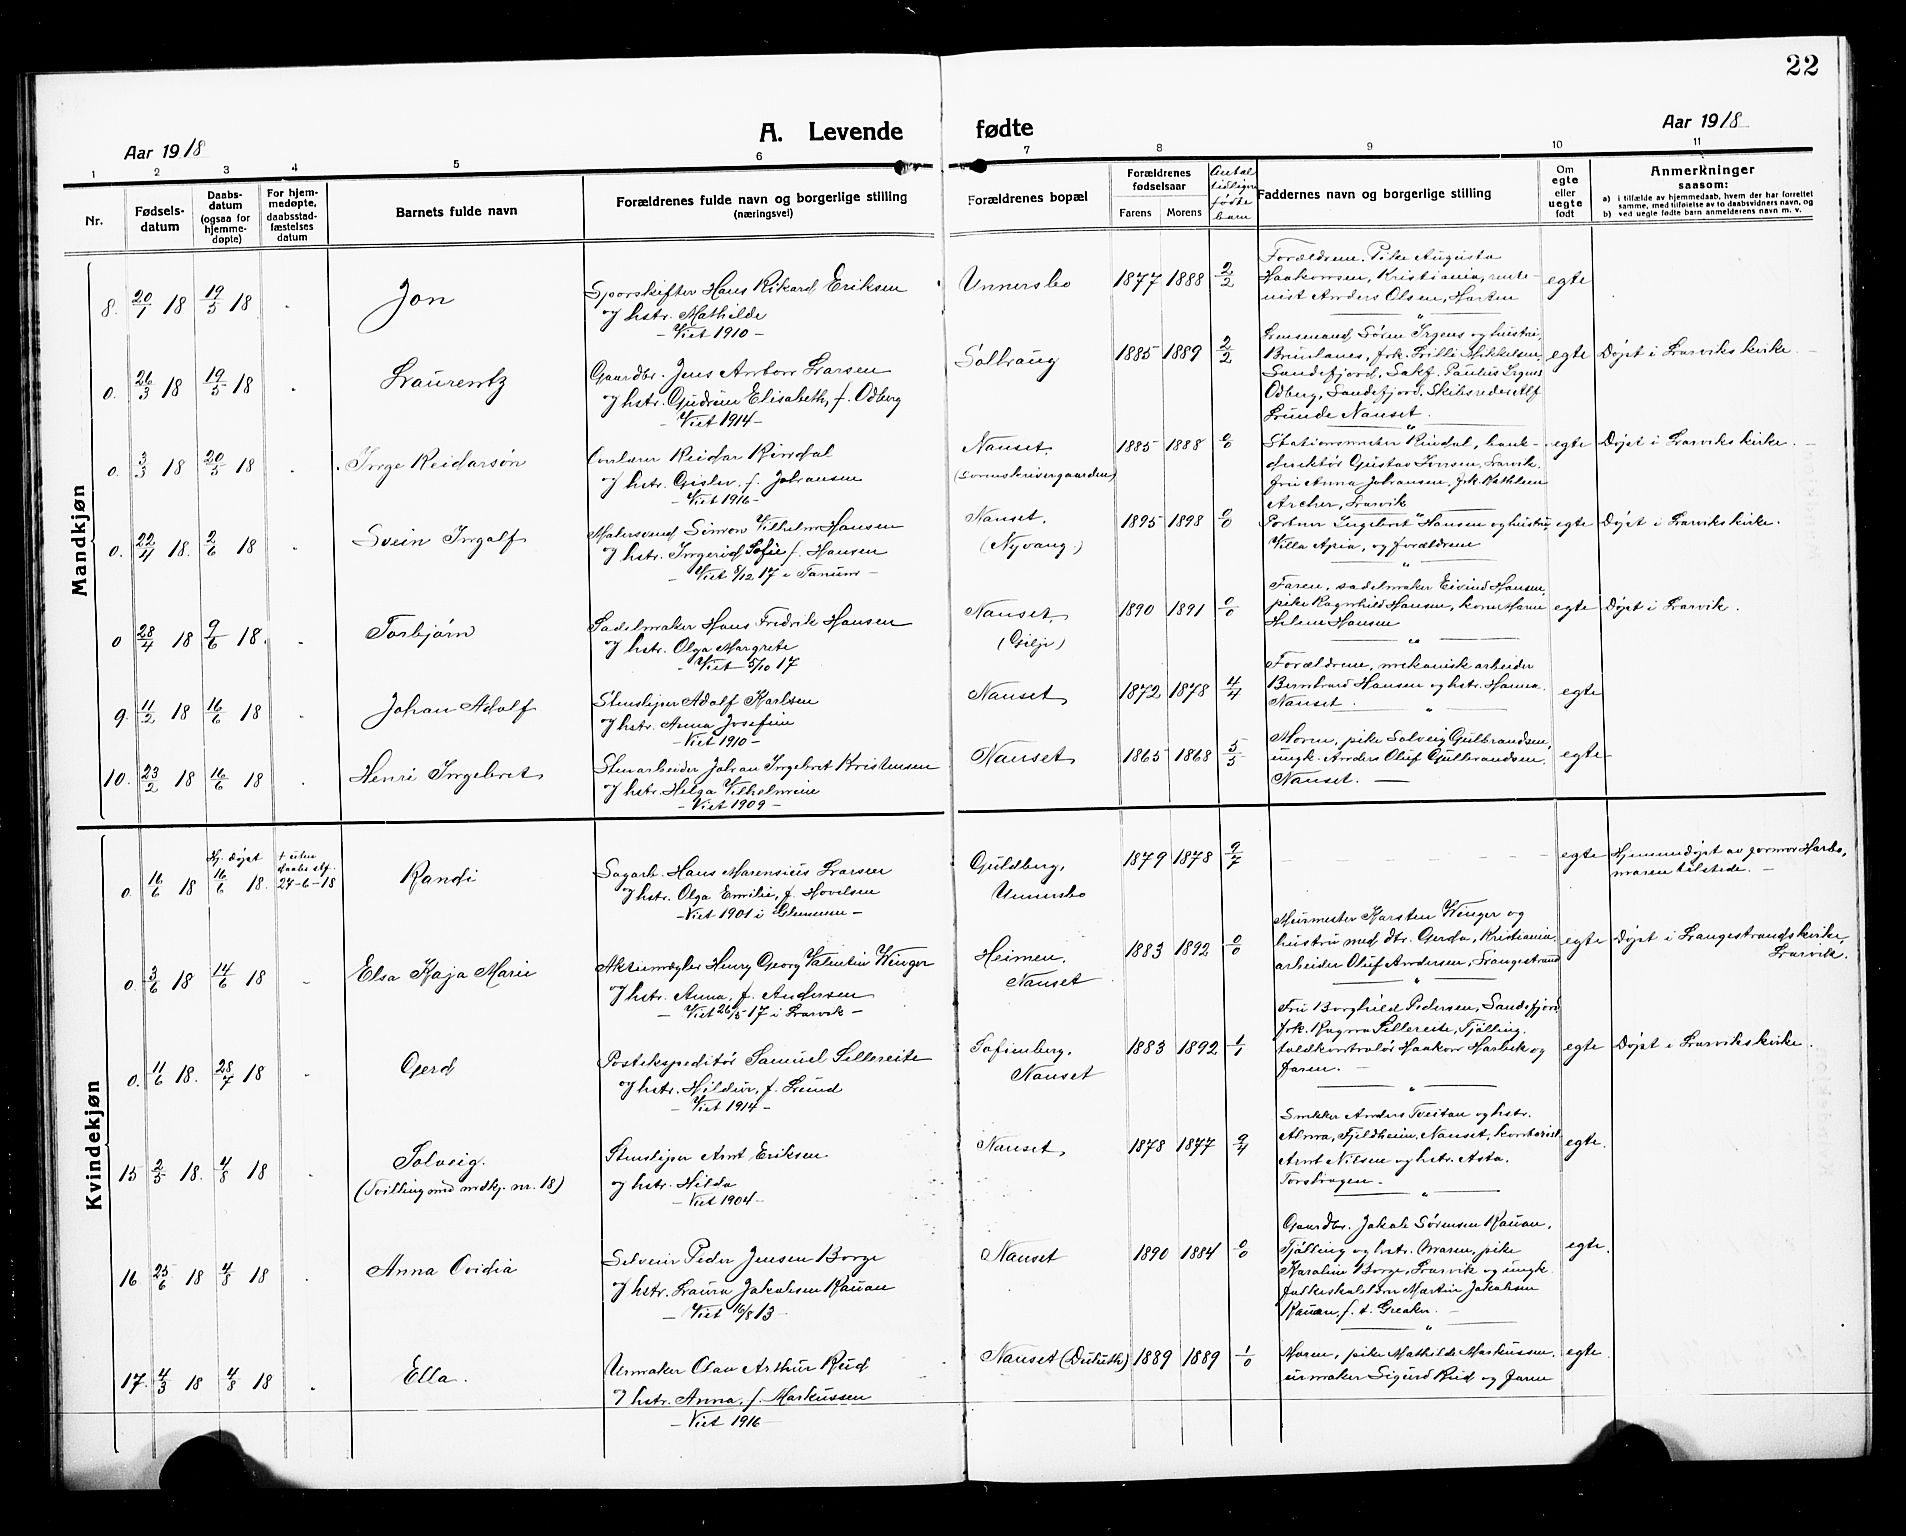 22
A. Levende fødte
Aar 1918
Aar 1918
1 2 3 4 5 6 7 8 9 10 11
Nr.
Fødsels-
datum
Daabs-
datum
(ogsaa for
hjemme-
døpte)
For hjem-
medøpte,
daabsstad-
fæstelses
datum
Barnets fulde navn
Forældrenes fulde navn og borgerlige stilling
(næringsvei)
Forældrenes bopæl
Forældrenes
fødselsaar
Farens Morens
Antal
tidligere
fødte
barn
Faddernes navn og borgerlige stilling
Om
egte
eller
uegte
født
Anmerkninger
saasom:
a) i tilfælde av hjemmedaab, hvem der har forrettet
samme, med tilføielse av to daabsvidners navn, og
b) ved uegte fødte barn anmelderens navn m. v.
Mandkjøn
8. 20/1 18 19/5 18 Jon
Sporskifter Hans Rikard Eriksen
og hstr. Mathilde
- Viet 1910 -
Unnersbo 1877 1888 2/2
Forældrene. Pike Augusta
Haakonsen, Kristiania, rente-
nist Anders Olsen, Horten
egte
0. 26/3 18 19/5 18 Laurentz
Gaardbr. Jens Anton Larsen
og hstr. Gudrun Elisabeth, f. Odberg
- Viet 1914 -
Solbraug 1885 1889 2/2
Lensmand Sören Irgens og hustru,
Brunlanes, frk. Lilli Mikkelsen,
Sandefjord, Sakf. Paulus Irgens
Odberg, Sandefjord, Skibsreder Alf
Lunde Nanset.
egte Døpt i Larviks kirke. -
0. 3/3 18 20/5 18 Inge Reidarsøn
Overlærer Reidar Rindal
og hstr. Gislev, f. Johansen
- Viet 1916 -
Nanset
(Sorenskrivergaarden)
1885 1888 0/0
Stationsmester Rindal, bank-
direktör Gustav Jonsen, Larvik,
fru Anna Johansen, frk. Kathleen
Archer, Larvik
egte Døpt i Larviks kirke. -
0. 22/4 18. 2/6 18 Svein Ingolf
Malersvend Simon Vilhelm Hansen
og hstr. Ingerid Sofie f. Hansen
- Viet 8/12 17 i Tanum -
Nanset,
(Nyvang.)
1895 1898 0/0
Portner Ingebret Hansen og hustru,
Villa Apia, og forældrene
egte Døpt i Larviks kirke.
0 28/4 18 9/6 18. Torbjørn
Sadelmaker Hans Fredrik Hansen
og hstr. Olga Margrete
- Viet 5/10 17
Nanset,
(Gilje)
1890 1891 0/0
Faren, sadelmaker Eivind Hansen,
pike Ragnhild Hansen, kone Maren
Helene Hansen
egte Døpt i Larvik.
9. 11/2 18 16/6 18 Johan Adolf
Stensliper Adolf Karlsen
og hstr. Anna Josefine
- Viet 1910 -
Nanset 1872 1878 4/4
Forældrene, mekanisk arbeider
Bernhard Hansen og hstr. Hanna.
Nanset.
egte
10. 23/2 18 16/6 18 Henri Ingebret
Stenarbeider Johan Ingebret Kristensen
og hstr. Helga Vilhelmine
- Viet 1909 -
Nanset 1865 1868 5/5
Moren, pike Solveig Gulbrandsen,
ungk. Anders Oluf Gulbrandsen,
Nanset. -
egte
Kvindekjøn
0. 16/6 18 Hj. døpt 16/6 18. † uten daabs stf. 24-6-18 Randi
Sagarb. Hans Marensius Larsen
og hstr. Olga Emilie, f. Hovelsen
- Viet 1901 i Glemmen -
Guldberg,
Unnersbo
1879 1878 9/7
egte Hjemmedøpt av jormor Harbo,
moren tilstede. -
0. 3/6 18 14/6 18 Elsa Kaja Marie
Aktiemægler Henry Georg Valentin Winger
og hstr. Anna, f. Andersen
- Viet 26/5 17 i Larvik -
Heimen,
Nanset
1883 1892 0/0
Murmester Karsten Winger og
hustru med dtr. Gerda, Kristiania,
arbeider Oluf Andersen, Langestrand
egte Døpt i Langestrands kirke,
Larvik.
0. 11/6 18. 28/7 18 Gerd
Postekspeditör Samuel Sellereite
og hstr. Hildur, f. Lund
- Viet 1914 -
Sofienberg,
Nanset
1883 1892 1/1
Fru Borghild Pedersen, Sandefjord,
frk. Ragna Sellereite, Tjölling,
toldkontrolör Haakon Harbek og
faren. -
egte Døpt i Larviks kirke.
15 2/5 18. 4/8 18 Solveig.
(Tvilling med mdkj. nr. 18)
Stensliper Arnt Eriksen
og hstr. Hilda
- Viet 1904 -
Nanset 1878 1877 9/4
Snekker Anders Tveitan og hstr.
Alma, Fjeldheim, Nanset, kontorist
Arnt Nilsen og hstr. Asta,
Torstragen. -
egte.
16 25/6 18 4/8 18 Anna Ovidia
Selveier Peder Jensen Borge
og hstr. Laura Jakobsen Rauan
- Viet 16/8 13 -
Nanset 1890 1884 0/0
Gaardbr. Jakob Sørensen Rauan,
Tjölling og hstr. Maren, pike
Karoline Borge, Larvik og ungk.
folkeskolelærer Martin Jakobsen
Rauan, f. t. Greaker. -
egte.
17. 4/3 18 4/8 18 Ella.
Urmaker Olav Arthur Rud
og hstr. Anna, f. Markussen
- Viet 1916 -
Nanset (Duluth) 1889 1889 1/0
Moren, pike Mathilde Markussen,
urmaker Sigurd Rud og faren
egte.